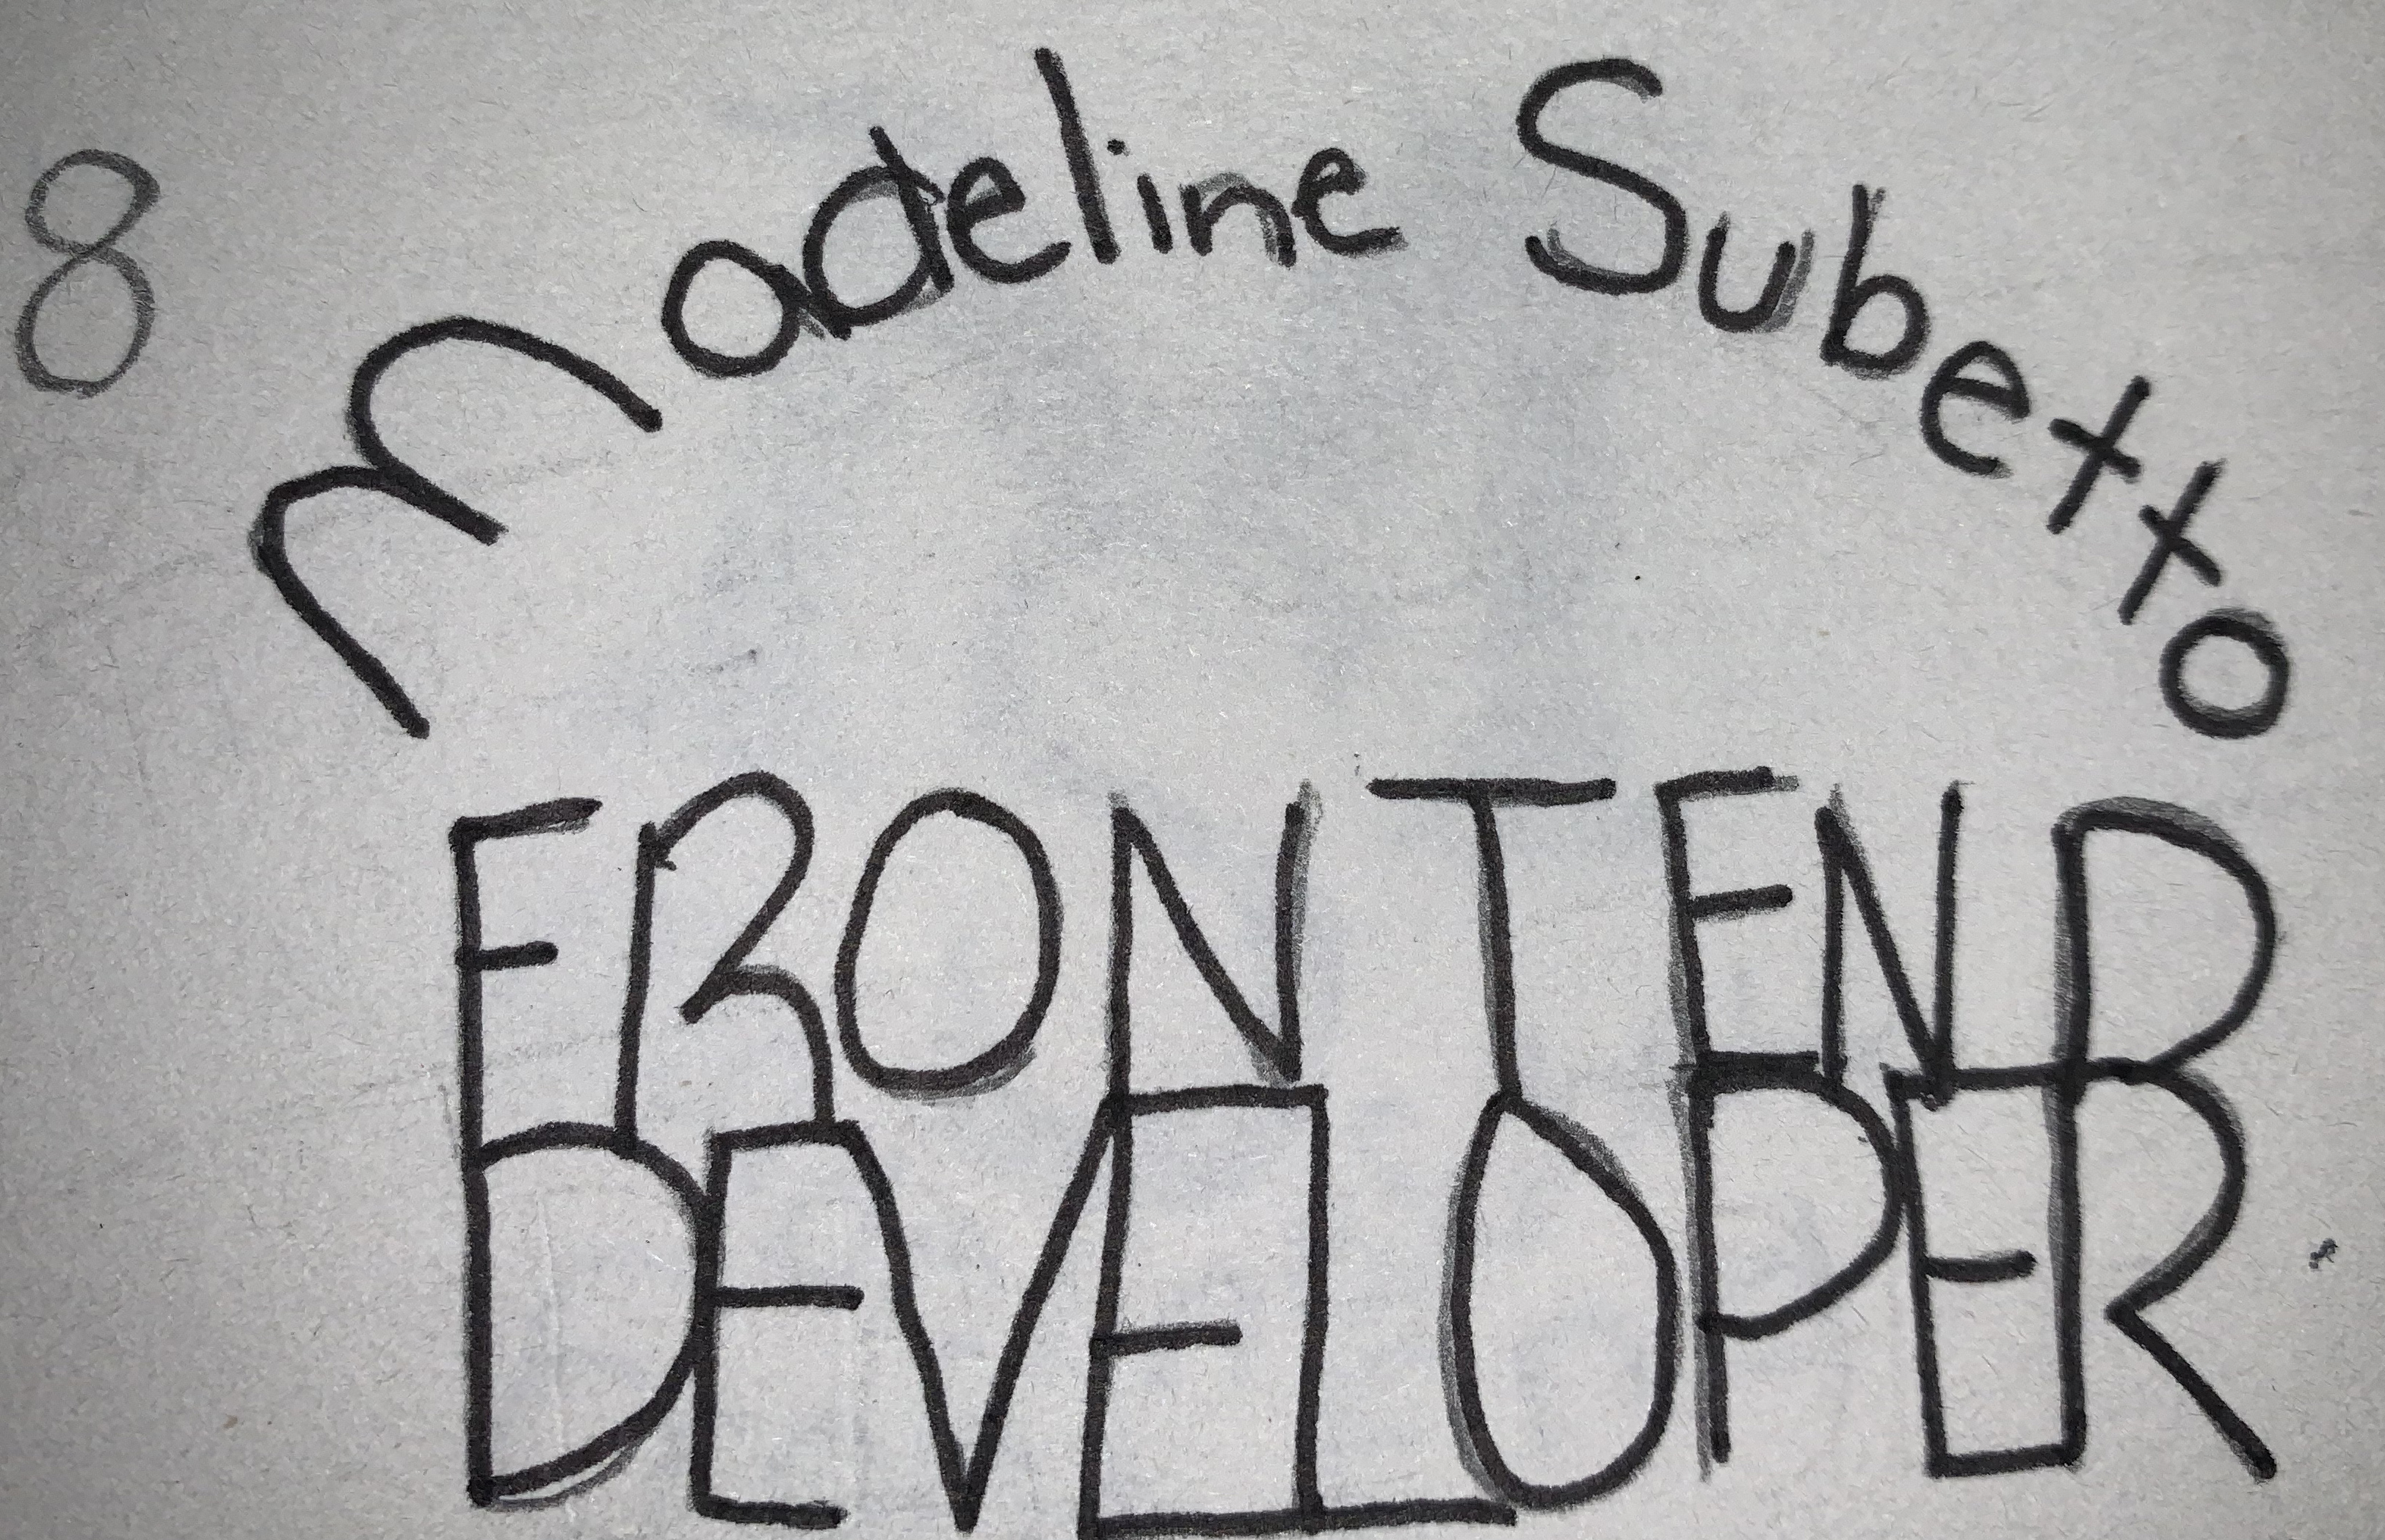 8
Madeline Subetto
FRONT END
DEVELOPER